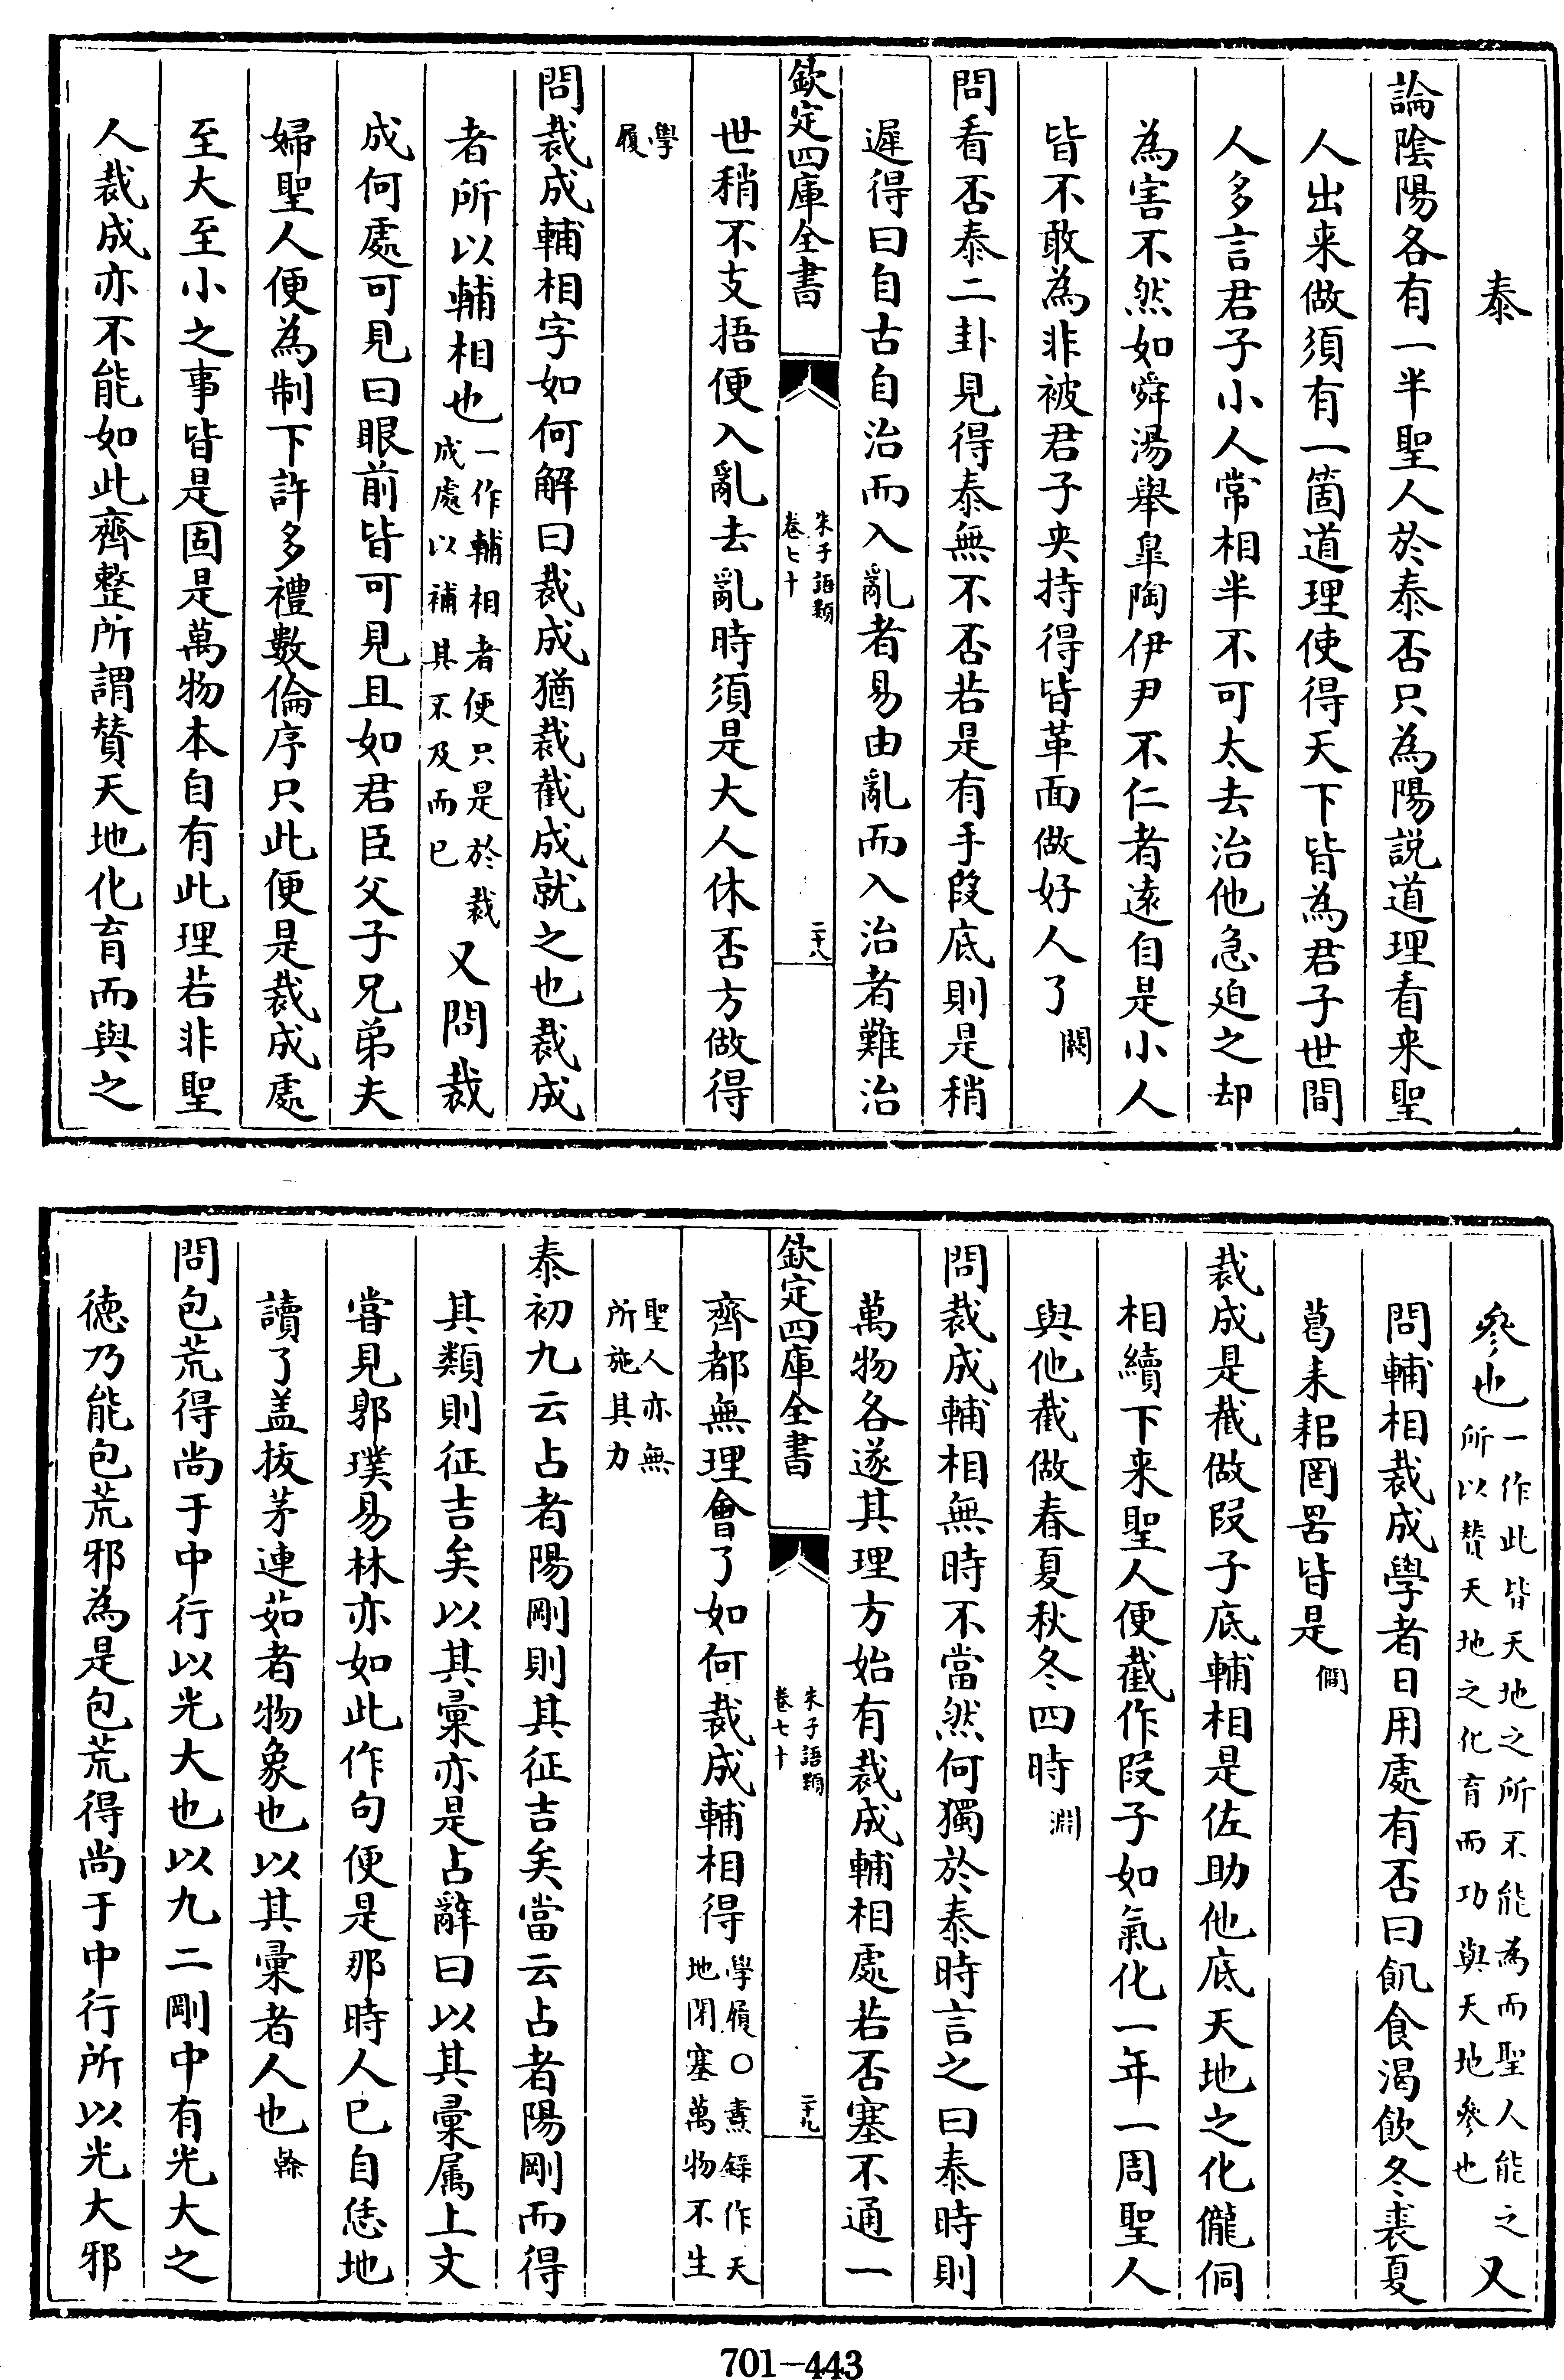 泰
論陰陽各有一半聖人於泰否只為陽説道理看来聖
人出来做須有一箇道理使得天下皆為君子世間
人多言君子小人常相半不可太去治他急迫之却
為害不然如舜湯舉皐陶伊尹不仁者逺自是小人
皆不敢為非被君子夾持得皆革面做好人了闕
問看否泰二卦見得泰無不否若是有手段底則是稍
遲得曰自古自治而入亂者易由亂而入治者難治
欽定四庫全書
朱子語類
卷七十
二十八
世稍不支捂便入亂去亂時須是大人休否方做得
學
履
問裁成輔相字如何解曰裁成猶裁截成就之也裁成
者所以輔相也一作輔相者便只是於裁
成處以補其不及而已又問裁
成何處可見曰眼前皆可見且如君臣父子兄弟夫
婦聖人便為制下許多禮數倫序只此便是裁成處
至大至小之事皆是固是萬物本自有此理若非聖
人裁成亦不能如此齊整所謂賛天地化育而與之
參也一作此皆天地之所不能為而聖人能之
所以賛天地之化育而功與天地參也又
問輔相裁成學者日用處有否曰飢食渴飲冬裘夏
葛耒耜罔罟皆是僴
裁成是截做段子底輔相是佐助他底天地之化儱侗
相續下来聖人便截作段子如氣化一年一周聖人
與他截做春夏秋冬四時淵
問裁成輔相無時不當然何獨於泰時言之曰泰時則
萬物各遂其理方始有裁成輔相處若否塞不通一
欽定四庫全書
朱子語類
卷七十
二十九
齊都無理會了如何裁成輔相得學履○燾録作天
地閉塞萬物不生
聖人亦無
所施其力
泰初九云占者陽剛則其征吉矣當云占者陽剛而得
其類則征吉矣以其彚亦是占辭曰以其彚属上文
嘗見郭璞易林亦如此作句便是那時人已自恁地
讀了盖拔茅連茹者物象也以其彚者人也榦
問包荒得尚于中行以光大也以九二剛中有光大之
德乃能包荒邪為是包荒得尚于中行所以光大邪
701-443